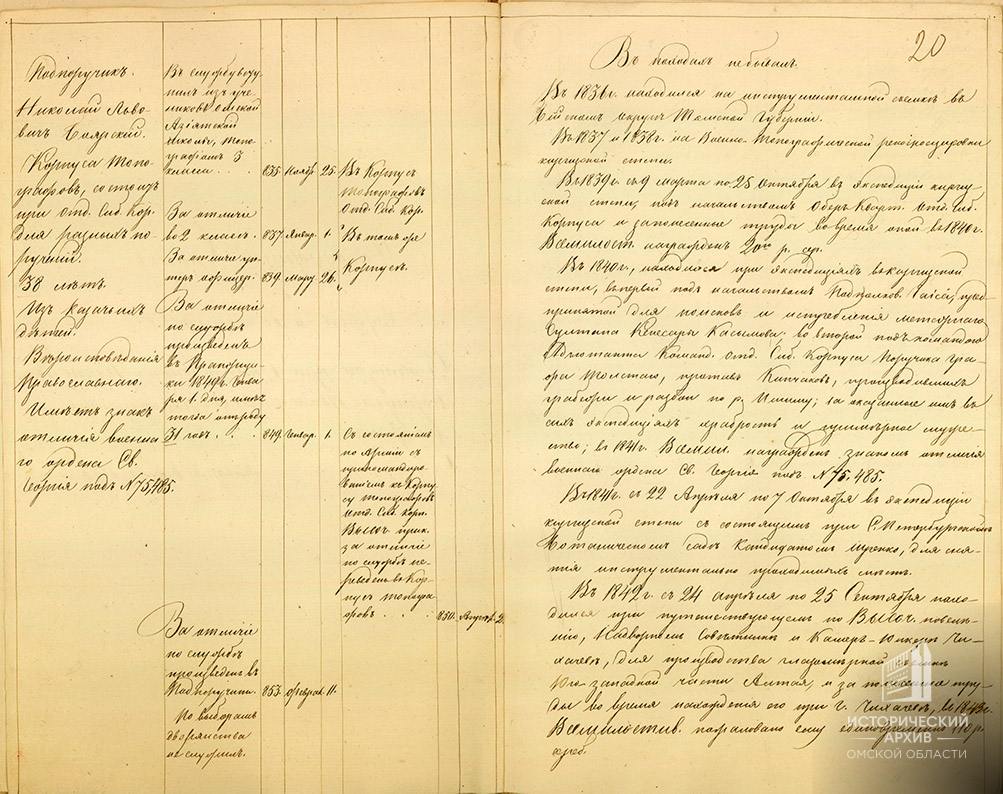 Подпоручикъ.
Николай Льво-
вичъ Боярскій.
Корпуса Топо-
графовъ, состоитъ
при Отд. Сиб. Кор.
для разныхъ по-
рученій.
38 лѣтъ.
Изъ казачьихъ
дѣтей.
Вѣроисповѣданія
Православнаго.
Имѣетъ знакъ
отличія военна-
го ордена Св.
Георгія подъ №75,485.
Въ службу всту-
пилъ изъ уче-
никовъ Омской
Азіятской
школы, Топо-
графомъ 3
класса . . . 835. Ноябр. 25.
Въ Корпусъ
Топографовъ
Отд. Сиб. Кор.
За отличіе
во 2 классъ. 837. Январ. 1.
Въ томъ же
За отличіе ун-
теръ офицер. 839. Мару 26.
Корпусѣ.
За отличіе
по службѣ
произведенъ
въ Прапорщи-
ки 1849 г. Генва-
ря 1. дня, имѣя
тогда отъ роду
31 годъ . . . 849. Генвар. 1.
Съ состояніемъ
по Арміи съ
прикомандиро-
ваніемъ къ Корпу-
су топографовъ
Отд. Сиб. Корп.
Высоч. прик.
за отличіе
по службѣ пе-
реведенъ въ Кор-
пусъ топогра-
фовъ . . . 850. Апрѣл. 2.
За отличіе
по службѣ
произведенъ въ
Подпоручики. 853. Феврал. 11.
По выборамъ
дворянства
не служилъ.
20
Въ походахъ небывалъ.
Въ 1836 г. находился на инструментальной съемкѣ въ
Бійскомъ округѣ Томской Губерніи.
Въ 1837 и 1838 г. на Военно-Топографической рекогносцировкѣ
киргизской степи.
Въ 1839 г. съ 9 марта по 25 Октября въ экспедиціи киргиз-
ской степи, подъ начальствомъ Оберъ-Кварт. Отд. Сиб.
Корпуса и за понесенные труды во время оной въ 1840 г.
Всемилост. награжденъ 20ю р. сер.
Въ 1840 г., находился при экспедиціяхъ въ киргизской
степи, въ первой подъ начальствомъ Подполков. пред-
принятой для поисковъ и истребленія мятежнаго
Султана Кенесары Касымова; во второй подъ командою
Адъютанта Команд. Отд. Сиб. Корпуса Поручика Гра-
фа Толстаго, противъ Кипчаковъ, производившихъ
грабежи и разбои по р. Ишиму; за оказанные имъ въ
сихъ экспедиціяхъ храбрость и примѣрное муже-
ство; въ 1841 г. Всемил. награжденъ знакомъ отличія
военнаго ордена Св. Георгія подъ №75,485.
Въ 1841 г. съ 22 Апрѣля по 7 Октября въ экспедиціи
киргизской степи съ состоящимъ при С. Петербургскомъ
Ботаническомъ садѣ Кандидатомъ Шренко, для сня-
тія инструментально проходимыхъ мѣстъ.
Въ 1842 г. съ 24 апрѣля по 25 Сентября нахо-
дился при путешествующемъ по Высоч. повелѣ-
нію, Надворномъ Совѣтникѣ и Камеръ-Юнкерѣ Чи-
хачевѣ, для производства глазомѣрной съемки
Юго-западной части Алтая, и за понесенные тру-
ды во время нахожденія его при г. Чихачевѣ, въ 1843 г.
Всемилостив. пожаловано ему единовременно 110 р.
сереб.
ИСТОРИЧЕСКИЙ
АРХИВ
ОМСКОЙ ОБЛАСТИ